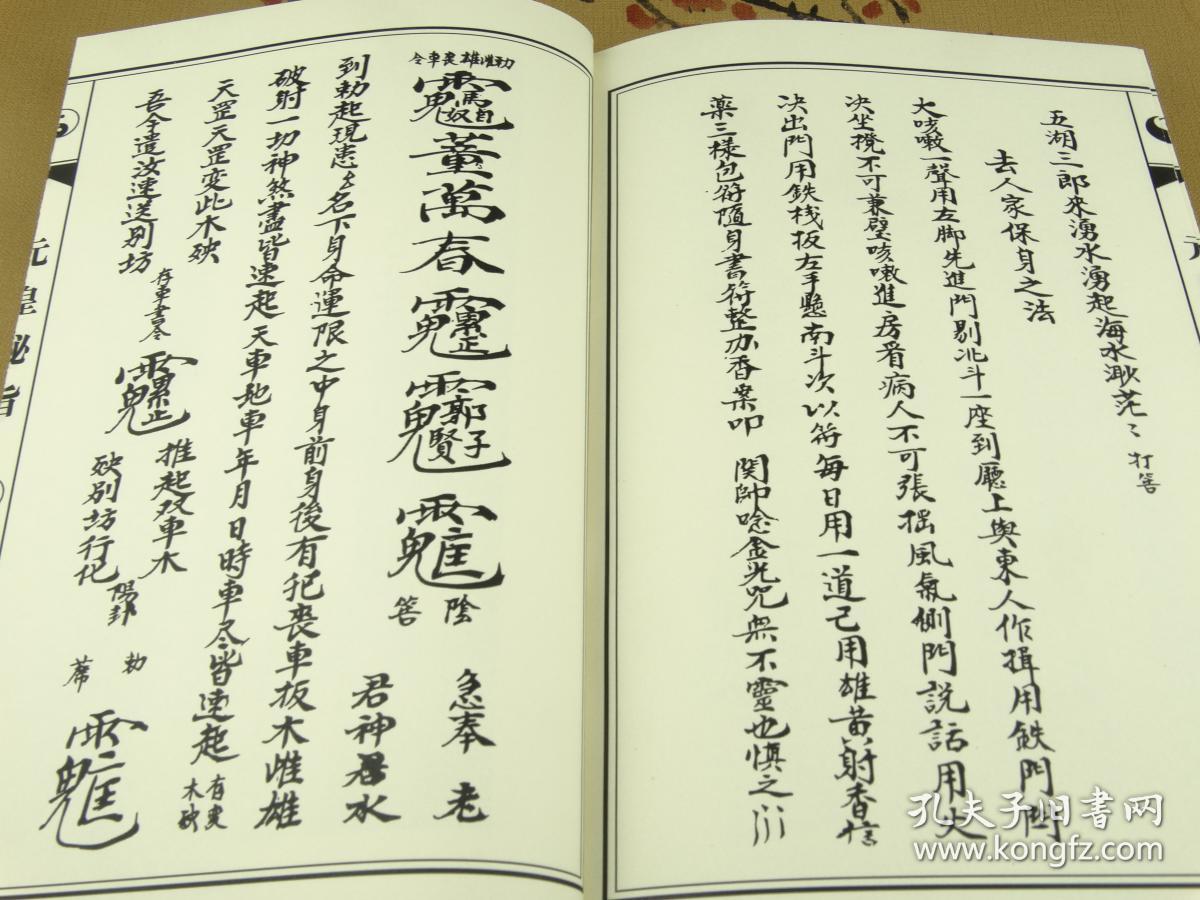 五湖三郎來湧水湧起海水渺茫〻打筶
去人家保身之法
大咳嗽一聲用左脚先進門剔北斗一座到廳上與東人作揖用鉄門閂
决坐櫈不可兼壁咳嗽進房看病人不可張摇風氣側門説話用火
决出門用鉄栈板左手懸南斗次以符每日用一道己用雄黄射香信
藥三樣包符隨身書符整办香案叩 関帥唸金光咒無不靈也慎之
勅雌雄喪車令
董萬春
郭子賢
陰筶
急奉老
君神
水
到勅起現患
名下身命運限之中身前身後有犯喪車扳木雌雄
破射一切神煞盡皆速起天車地車年月日時車尽皆速起
有喪木
天罡天罡变此木殃
吾今遣汝速送別坊
存車書令
推起双車木
殃別坊行化
陽卦
勅
元皇秘旨
孔夫子旧书网
www.kongfz.com